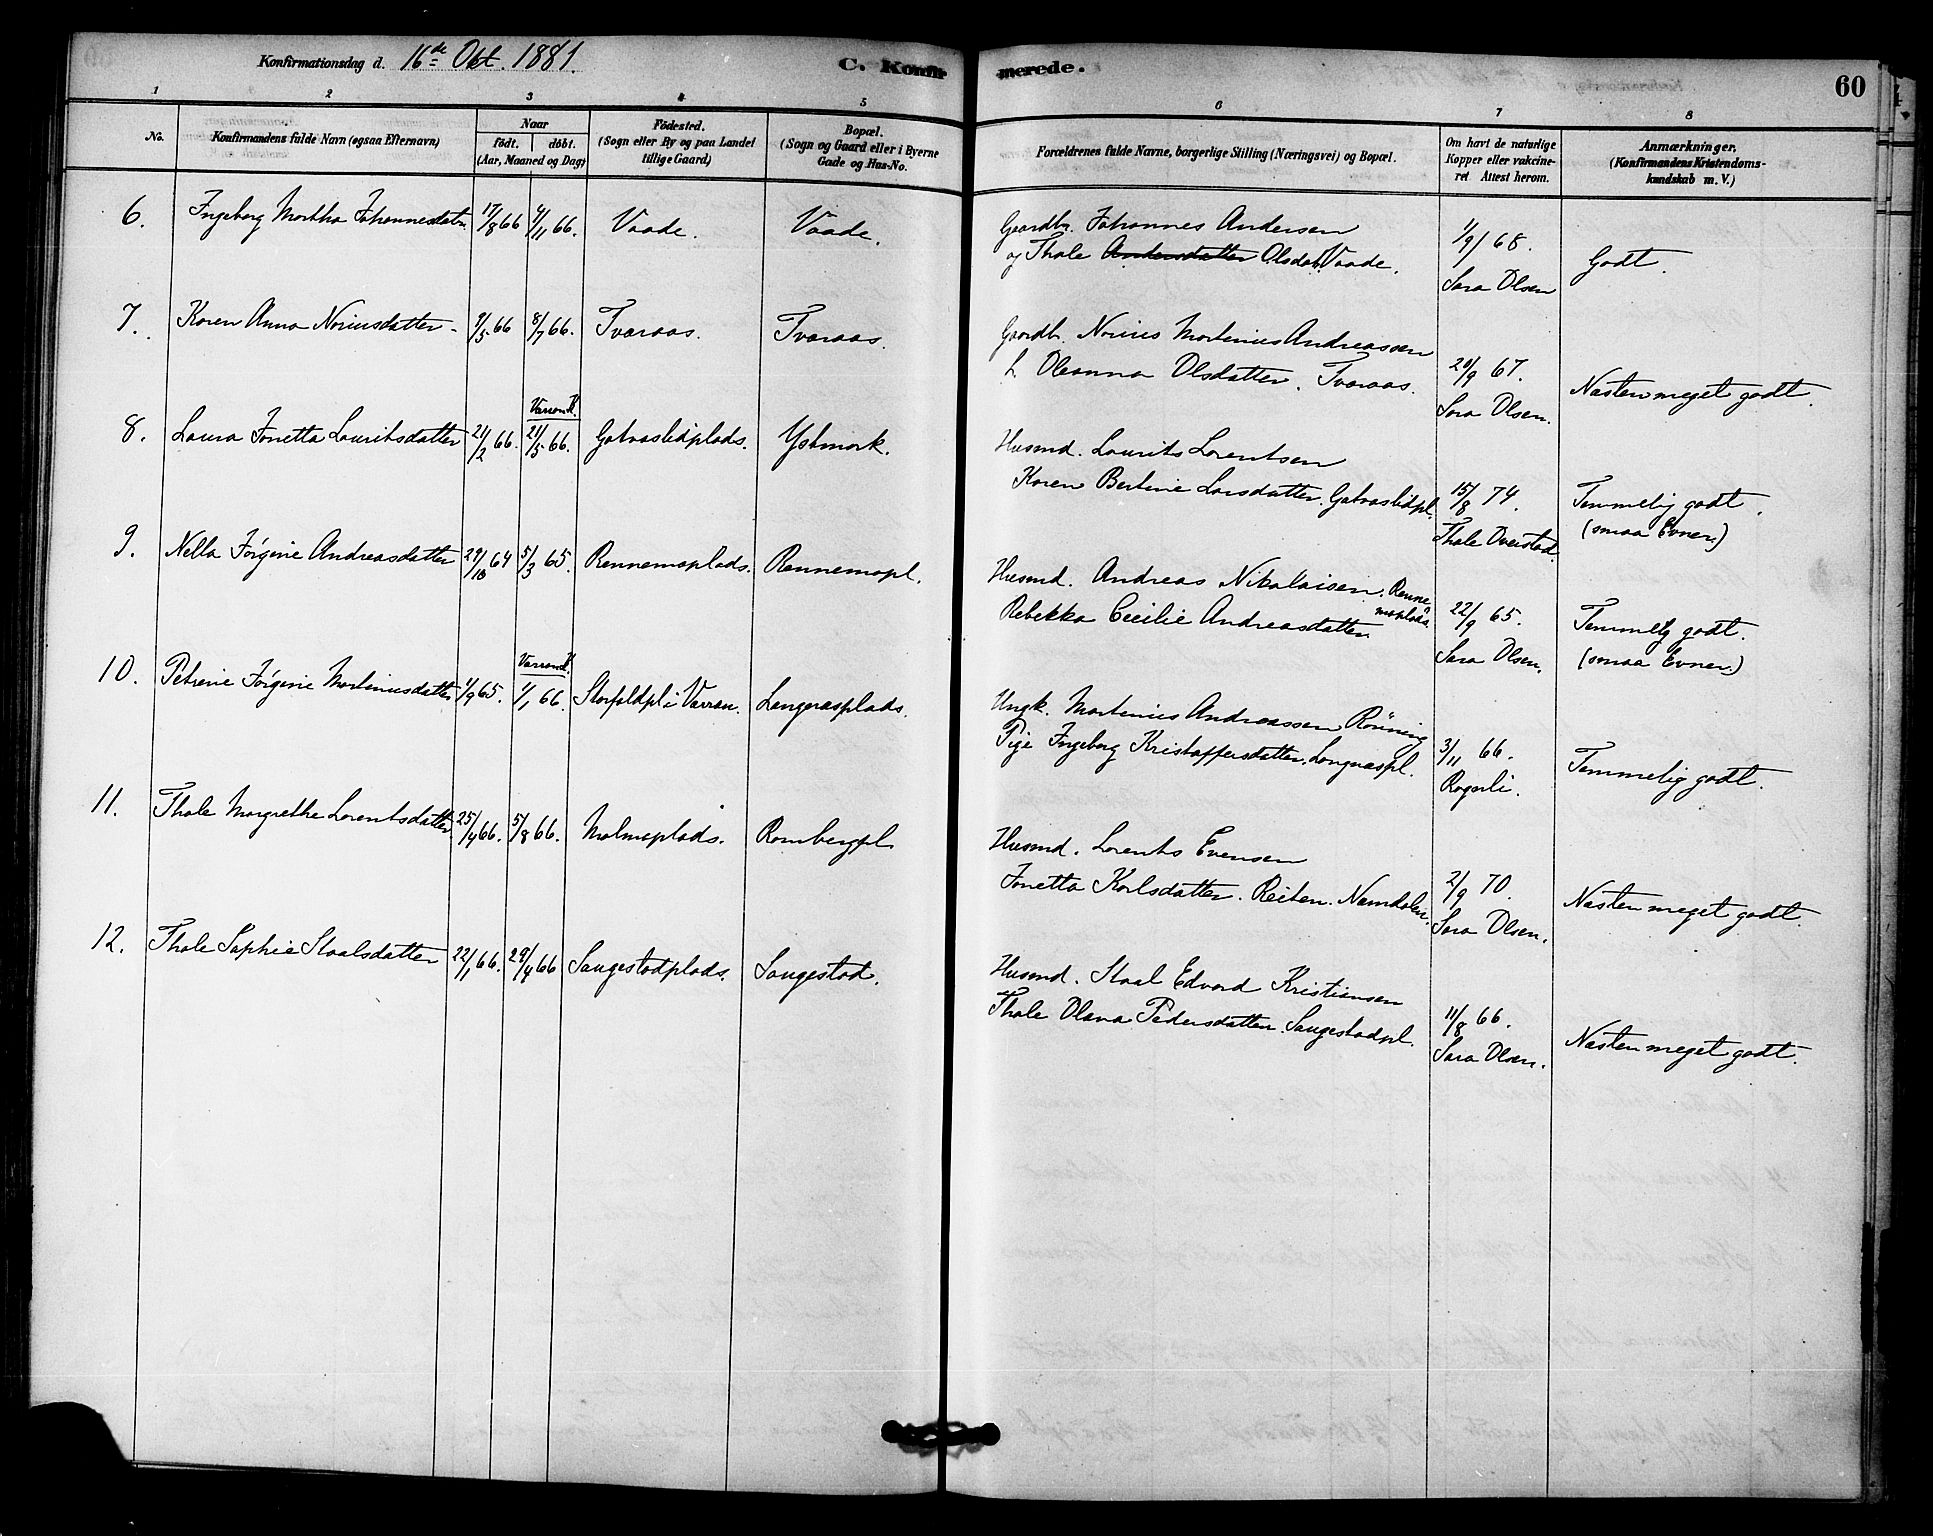 Konfirmationsdag d. 16de Okt. 1881.
C. Konfirmerede.
60
1 2 3 4 5 6 7 8
No.
Konfirmandens fulde Navn (ogsaa Efternavn)
Naar
födt. döbt.
(Aar, Maaned og Dag)
Födested.
(Sogn eller By og paa Landet
tillige Gaard)
Bopæl.
(Sogn og Gaard eller i Byerne
Gade og Hus-No.
Forældrenes fulde Navne, borgerlige Stilling (Næringsvei) og Bopæl.
Om havt de naturlige
Kopper eller vakcine-
ret Attest herom.
Anmærkninger.
(Konfirmandens Kristendoms-
kundskab m. V.)
6. Ingeborg Martha Johannesdatr. 17/8 66 4/11 66. Vaade. Vaade.
Gaardbr. Johannes Andersen
og Thale Andersdatter Olsdat. Vaade.
1/9 68.
Sara Olsen
Godt.
7. Karen Anna Noriusdatter 9/5 66 8/7 66. Tvaraas. Tvaraas.
Gaardbr. Norius Martinius Andreassen
Oleanna Olsdatter. Tvaraas.
20/9 67.
Sara Olsen.
Næsten meget godt.
8. Laura Jonetta Lauritsdatter 21/2 66. 21/5 66. Gatvaslidplads. Ystmark.
Husmd. Laurits Lorentsen
Karen Bertine Larsdatter. Gatvaslidpl.
15/8 74.
Thale Overstad
Temmelig godt.
(smaa Evner.)
9. Nella Jørgine Andreasdatter 29/10 64 5/3 65. Rennemsplads. Rennemspl.
Husmd. Andreas Nikolaisen. Renne
msplads.
Rebekka Cecilie Andreasdatter
22/9 65.
Sara Olsen.
Temmelig godt.
(smaa Evner.)
10. Petrine Jørgine Martinusdatter 1/9 65. 1/1 66. Storfaldpl i Varran. Langnesplads.
Ungk. Martinius Andreassen Rönning
Pige Ingeborg Kristoffersdatter. Langnespl.
3/11 66.
Rogerli.
Temmelig godt.
11. Thale Margrethe Lorentsdatter 25/4 66. 5/8 66. Malmoplads. Rambergpl
Husmd. Lorents Evensen
Jonetta Karlsdatter. Reiten. Namdalen.
2/9 70.
Sara Olsen.
Næsten meget godt.
12. Thale Sophie Staalsdatter 22/1 66. 29/4 66 Saugestadplads. Saugestad.
Husmd. Staal Edvard Kristiansen
Thale Olava Pedersdatter. Saugestadpl.
11/8 66.
Sara Olsen.
Næsten meget godt.